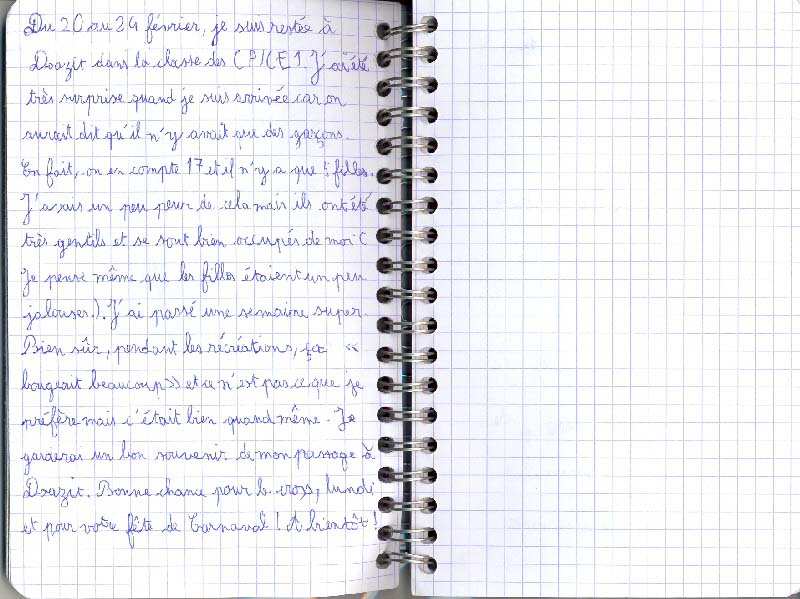 Du 20 au 24 février, je suis restée à
Doazit dans la classe des CP/CE1. J'ai été
très surprise quand je suis arrivée car on
aurait dit qu'il n'y avait que des garçons.
En fait, on en compte 17 et il n'y a que 5 filles.
J'avais un peu peur de cela mais ils ont été
très gentils et se sont bien occupés de moi (
Je pense même que les filles étaient un peu
jalouses.). J'ai passé une semaine super.
Bien sûr, pendant les récréations, ça «
bougeait beaucoup» et ce n'est pas ce que je
préfère mais c'était bien quand même. Je
garderai un bon souvenir de mon passage à
Doazit. Bonne chance pour le cross, lundi
et pour votre fête de Carnaval ! A bientôt !